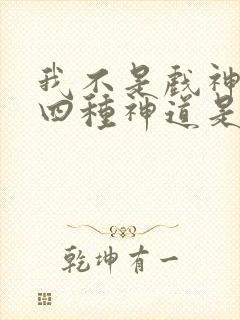 我不是戲神
四種神道是
乾坤有一